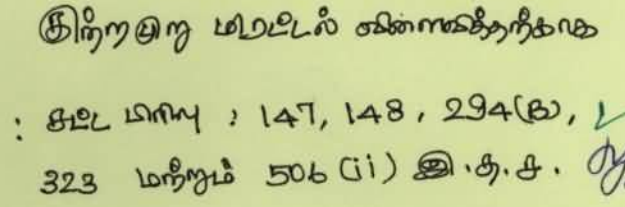 குற்றமுறு மிரட்டல் விளைவித்ததற்காக
: சட்ட பிரிவு : 147, 148, 294(b),
323 மற்றும் 506 (ii) இ.த.ச.